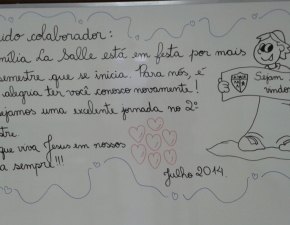 udo colaborador:
mília La Salle está em festa por mais
emestre que se inicia. Para nós, é
alegria ter você conosco novamente!
ejamos uma exelente jornada no 2º
stre.
que viva Jesus em nossos
a sempre!!!
Sejam
vindos
Julho 2014.